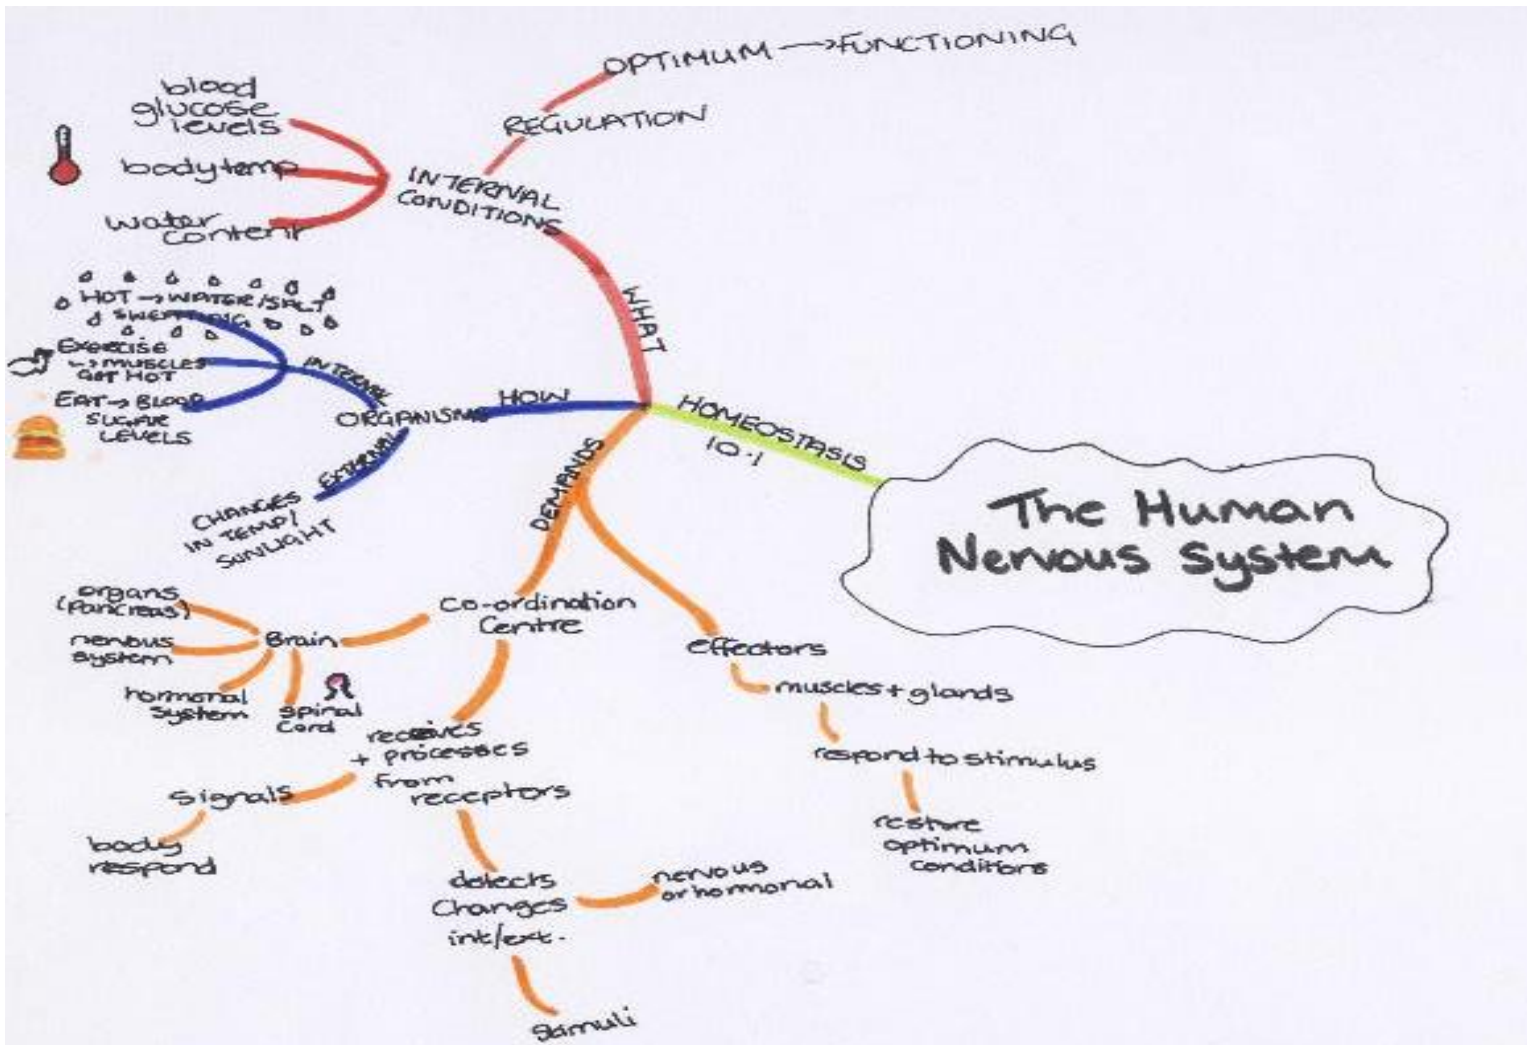 The Human
Nervous System
HOMEOSTASIS
10.1
WHAT
INTERNAL
CONDITIONS
REGULATION
OPTIMUM → FUNCTIONING
blood
glucose
levels
body temp
water
content
HOW
ORGANISMS
INTERNAL
HOT → WATER/SALT
SWEATING
EXERCISE
↳ MUSCLES
GET HOT
EAT → BLOOD
SUGAR
LEVELS
EXTERNAL
CHANGES
IN TEMP/
SUNLIGHT
DEMANDS
Co-ordination
Centre
Brain
organs
(pancreas)
nervous
system
hormonal
system
spinal
cord
receives
+ processes
from
receptors
signals
body
respond
detects
changes
int/ext.
nervous
or hormonal
stimuli
effectors
muscles + glands
respond to stimulus
restore
optimum
conditions